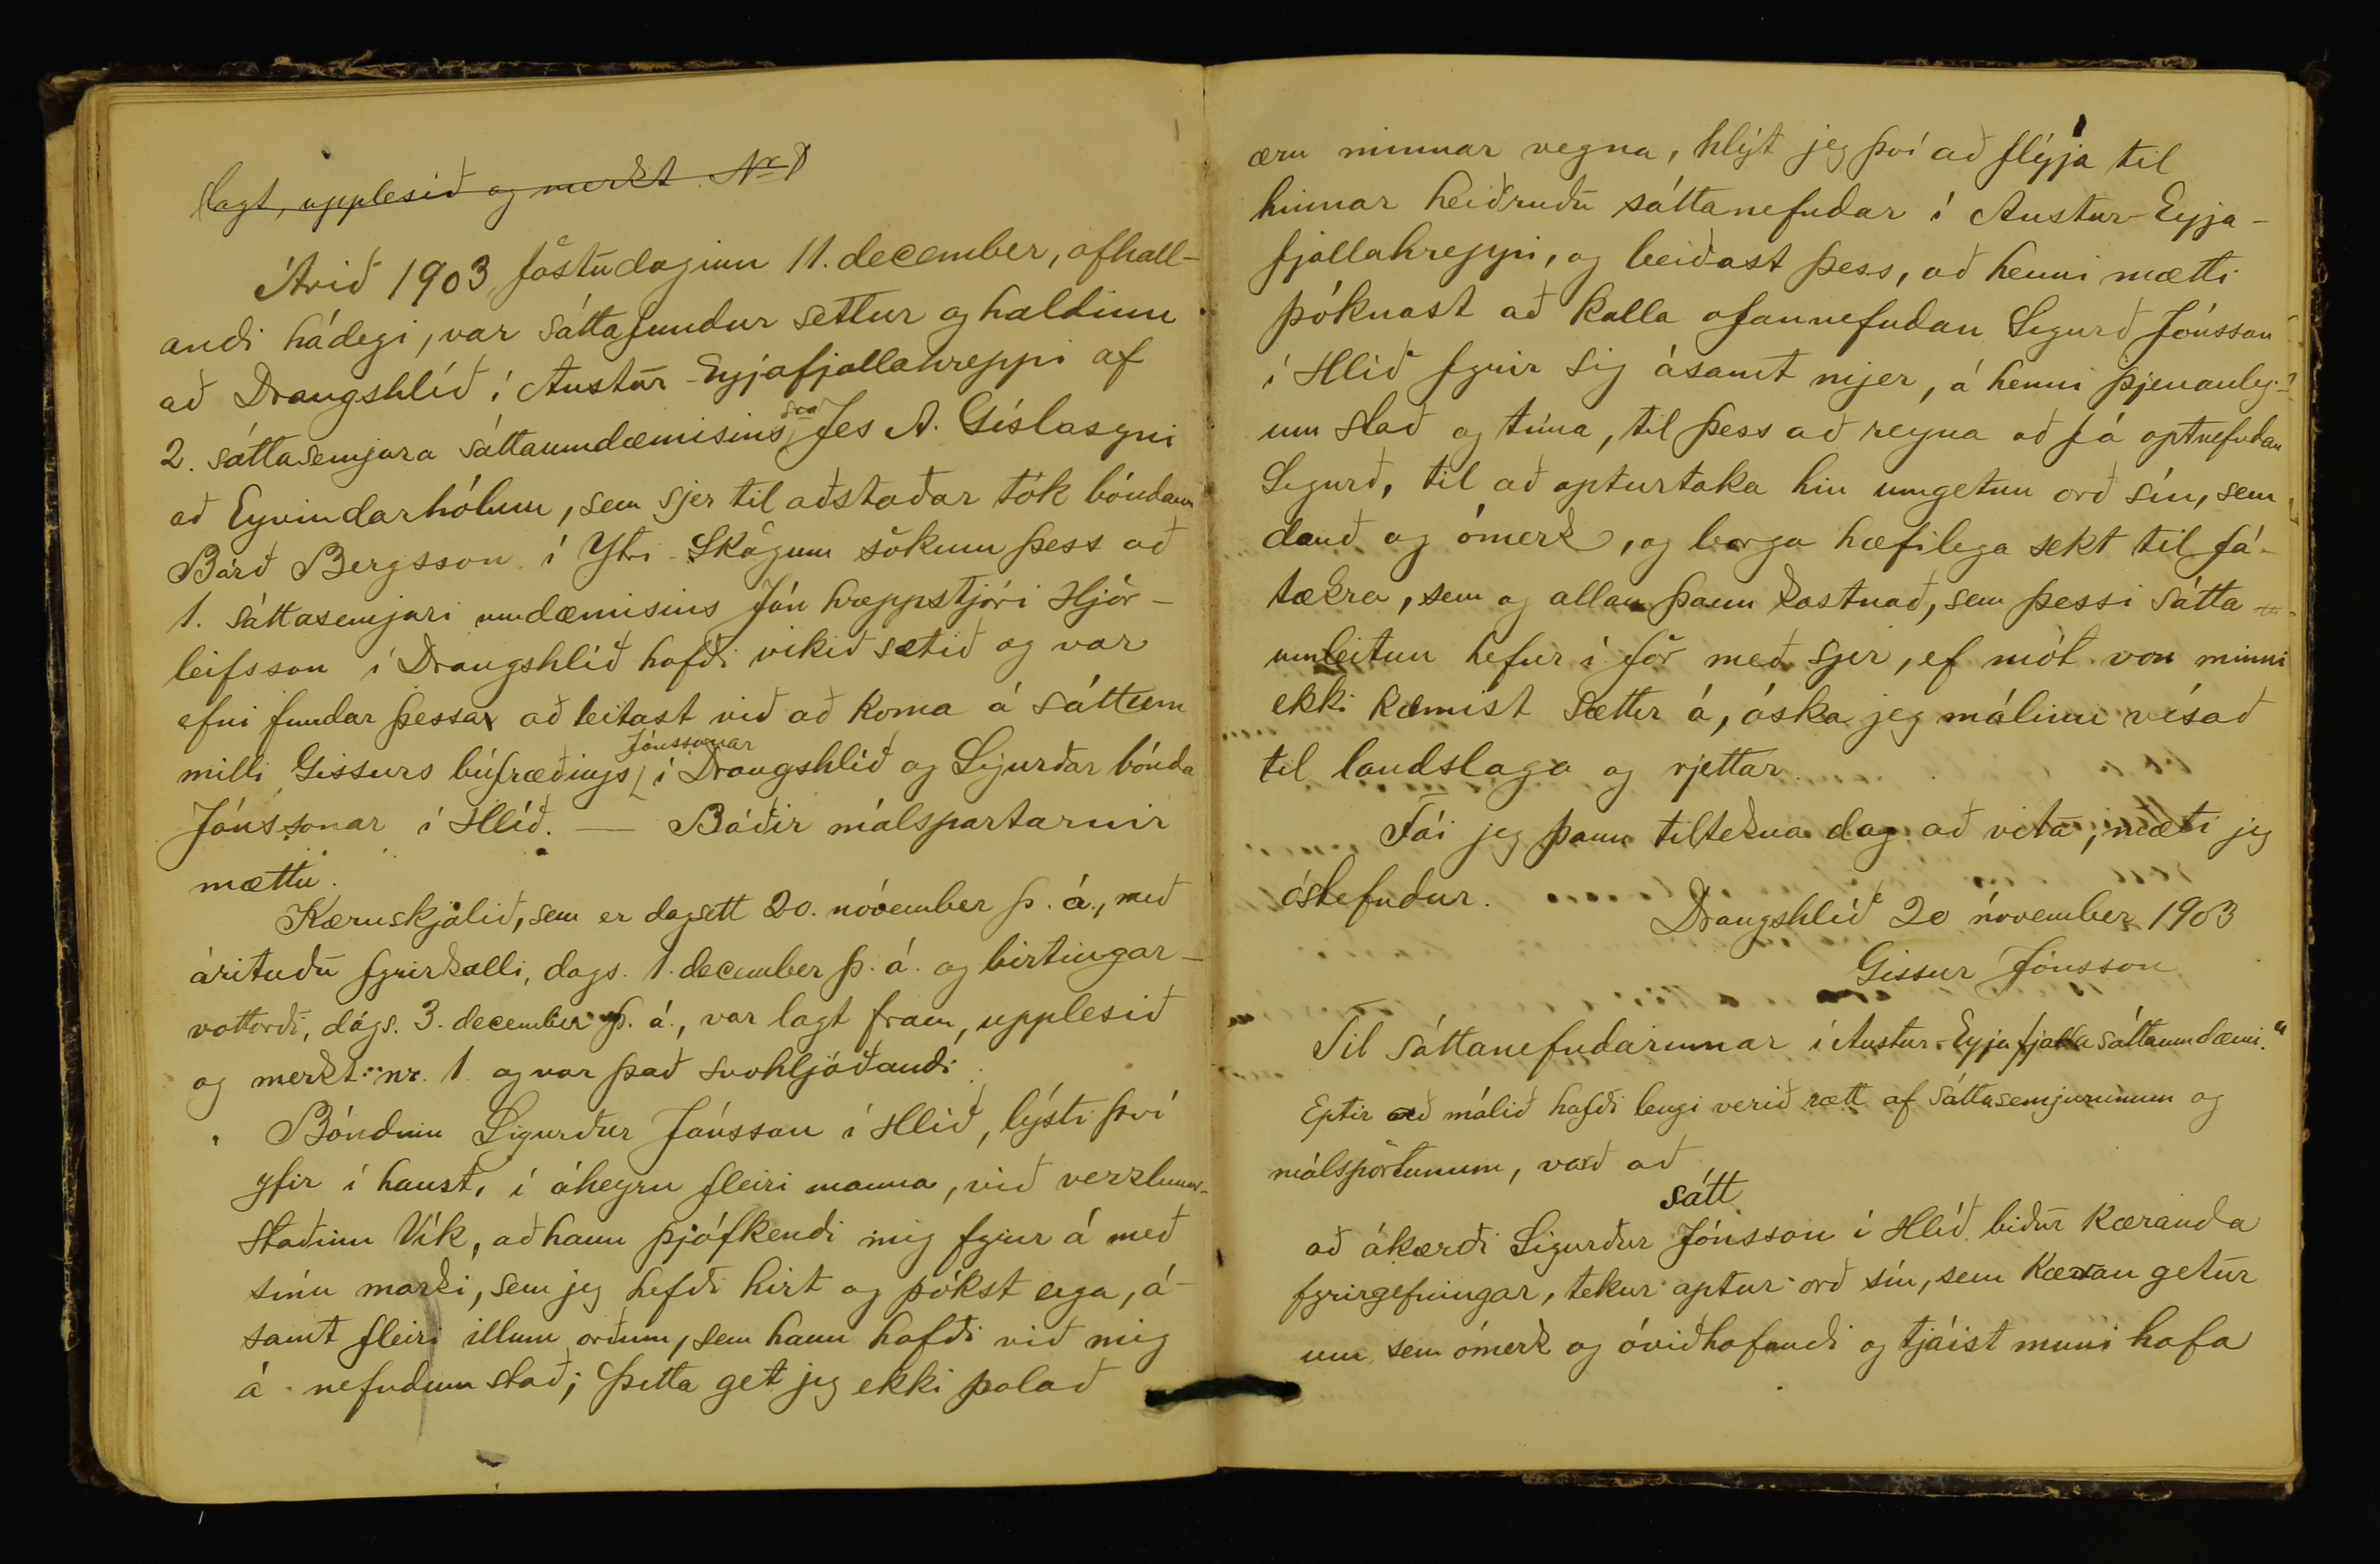 lagt, upplesið og merkt Nr 1
Árið 1903, föstudaginn 11. december, afhall-
andi hádegi, var sáttafundur settur og haldinn
að Drangshlíð í Austur-Eyjafjallahreppi af
2. sáttasemjara sáttaumdæmisins, sra Jes A. Gíslasyni
að Eyvindarhólum, sem sjer til aðstoðar tók bóndann
Bárð Bergsson í Ytri-Skógum sökum þess að
1. sáttasemjari umdæmisins Jón hreppstjóri Hjör-
leifsson í Drangshlíð hafði vikið sæti og var
efni fundar þessa að leitast við að koma á sáttum
milli Gissurs búfræðings Jónssonar í Drangshlíð og Sigurðar bónda
Jónssonar í Hlíð. — Báðir málspartarnir
mættu.
Kæruskjalið, sem er dagsett 20. nóvember þ. á., með
árituðu fyrirkalli, dags. 1. december þ. á. og birtingar-
vottorði, dags. 3. december þ. á., var lagt fram, upplesið
og merkt: nr. 1. og var það svohljóðandi:
„Bóndinn Sigurður Jónsson í Hlíð, lýsti því
yfir í haust, í áheyrn fleiri manna, við verzlunar-
staðinn Vík, að hann þjófkendi mig fyrir á með
sínu marki, sem jeg hefði hirt og þókst eiga, á-
samt fleiri illum orðum, sem hann hafði við mig
á nefndum stað; Þetta get jeg ekki þolað
æru minnar vegna, hlýt jeg því að flýja til
hinnar heiðruðu sáttanefndar í Austur-Eyja-
fjallahreppi, og beiðast þess, að henni mætti
þóknast að kalla ofannefndan Sigurð Jónsson
í Hlíð fyrir sig ásamt mjer, á henni þjenanleg-
um stað og tíma, til þess að reyna að fá optnefndan
Sigurð, til að apturtaka hin umgetnu orð sín, sem
dauð og ómerk, og borga hæfilega sekt til fá-
tækra, sem og allan þann kostnað, sem þessi sátta-
umleitun hefur í för með sjer, ef mót von minni
ekki kæmist sættir á, óska jeg málinu vísað
til landslaga og rjettar.
Fái jeg þann tiltekna dag að vita, mæti jeg
óstefndur.
Drangshlíð 20 nóvember 1903
Gissur Jónsson
Til sáttanefndarinnar í Austur-Eyjafjalla sáttaumdæmi.“
Eptir að málið hafði lengi verið rætt af sáttasemjurunum og
málspörtunum, varð að
sátt
að ákærði Sigurður Jónsson í Hlíð biður kæranda
fyrirgefningar, tekur aptur orð sín, sem kæran getur
um sem ómerk og óviðhafandi og tjáist muni hafa